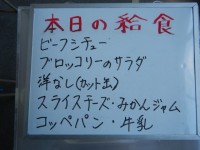 本日の給食
ビーフシチュー
ブロッコリーのサラダ
洋なし(カット缶)
スライスチーズ・みかんジャム
コッペパン・牛乳